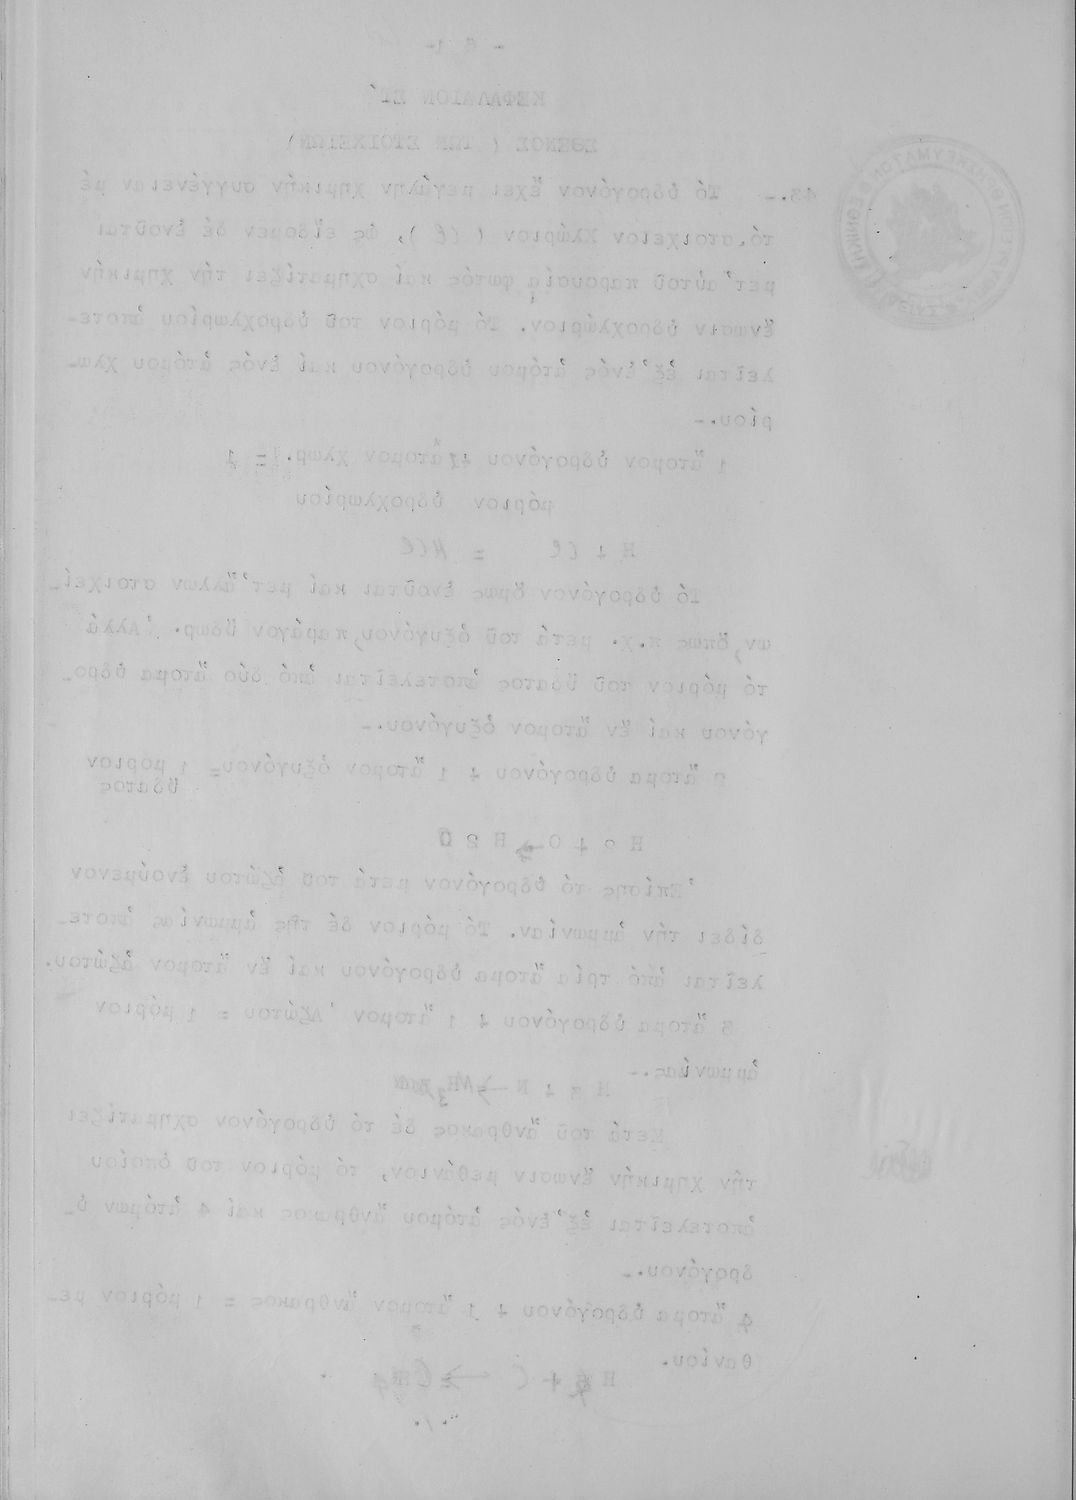 ΚΕΦΑΛΑΙΟΝ ΣΤ'
ΣΘΕΝΟΣ ( ΤΩΝ ΣΤΟΙΧΕΙΩΝ)
43.- Τό ὑδρογόνον ἔχει μεγάλην χημικήν συγγένειαν μέ
τό στοιχεῖον Χλώριον ( Cl ), ὡς εἴδομεν δέ ἑνοῦται
μετ' αὐτοῦ παρουσίᾳ φωτός καί σχηματίζει τήν χημικήν
ἕνωσιν ὑδροχλώριον. Τό μόριον τοῦ ὑδροχλωρίου ἀποτε-
λεῖται ἐξ' ἑνός ἀτόμου ὑδρογόνου καί ἑνός ἀτόμου χλω-
ρίου.-
1 ἄτομον ὑδρογόνου + 1 ἄτομον χλωρ. = 1
μόριον ὑδροχλωρίου
H + Cl = HCl
Τό ὑδρογόνον ὅμως ἑνοῦται καί μετ' ἄλλων στοιχεί-
ων, ὅπως π.χ. μετά τοῦ ὀξυγόνου, παράγον ὕδωρ. 'Αλλά
τό μόριον τοῦ ὕδατος ἀποτελεῖται ἀπό δύο ἄτομα ὑδρο-
γόνου καί ἕν ἄτομον ὀξυγόνου.-
2 ἄτομα ὑδρογόνου + 1 ἄτομον ὀξυγόνου= 1 μόριον
ὕδατος
H 2 + O → H 2 O
'Επίσης τό ὑδρογόνον μετά τοῦ ἀζώτου ἑνούμενον
δίδει τήν ἀμμωνίαν. Τό μόριον δέ τῆς ἀμμωνίας ἀποτε-
λεῖται ἀπό τρία ἄτομα ὑδρογόνου καί ἕν ἄτομον ἀζώτου.
3 ἄτομα ὑδρογόνου + 1 ἄτομον 'Αζώτου = 1 μόριον
ἀμμωνίας.-
H 3 + N → NH3
Μετά τοῦ ἄνθρακος δέ τό ὑδρογόνον σχηματίζει
τήν χημικήν ἕνωσιν μεθάνιον, τό μόριον τοῦ ὁποίου
ἀποτελεῖται ἐξ' ἑνός ἀτόμου ἄνθρακος καί 4 ἀτόμων ὑ-
δρογόνου.-
4 ἄτομα ὑδρογόνου + 1 ἄτομον ἄνθρακος = 1 μόριον με-
θανίου.
H 4 + C → CH4
./.